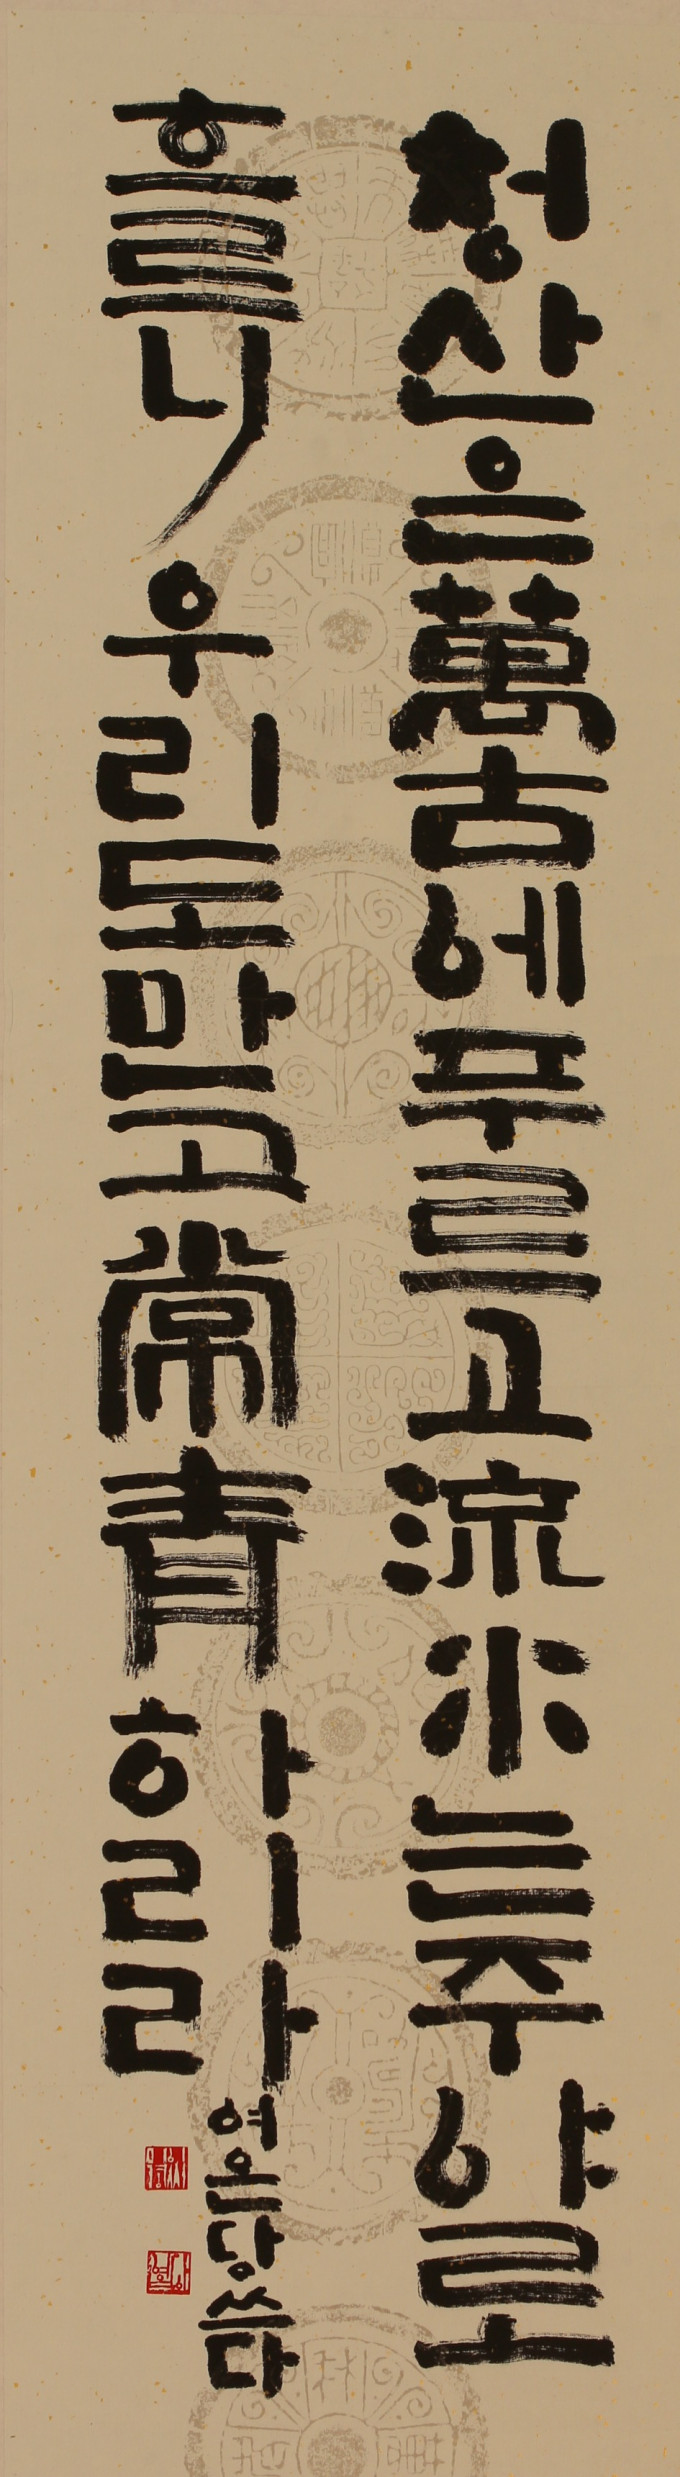 청산은萬古에푸르고流水는주야로
흐르니우리도만고常青하리라
여온당쓰다